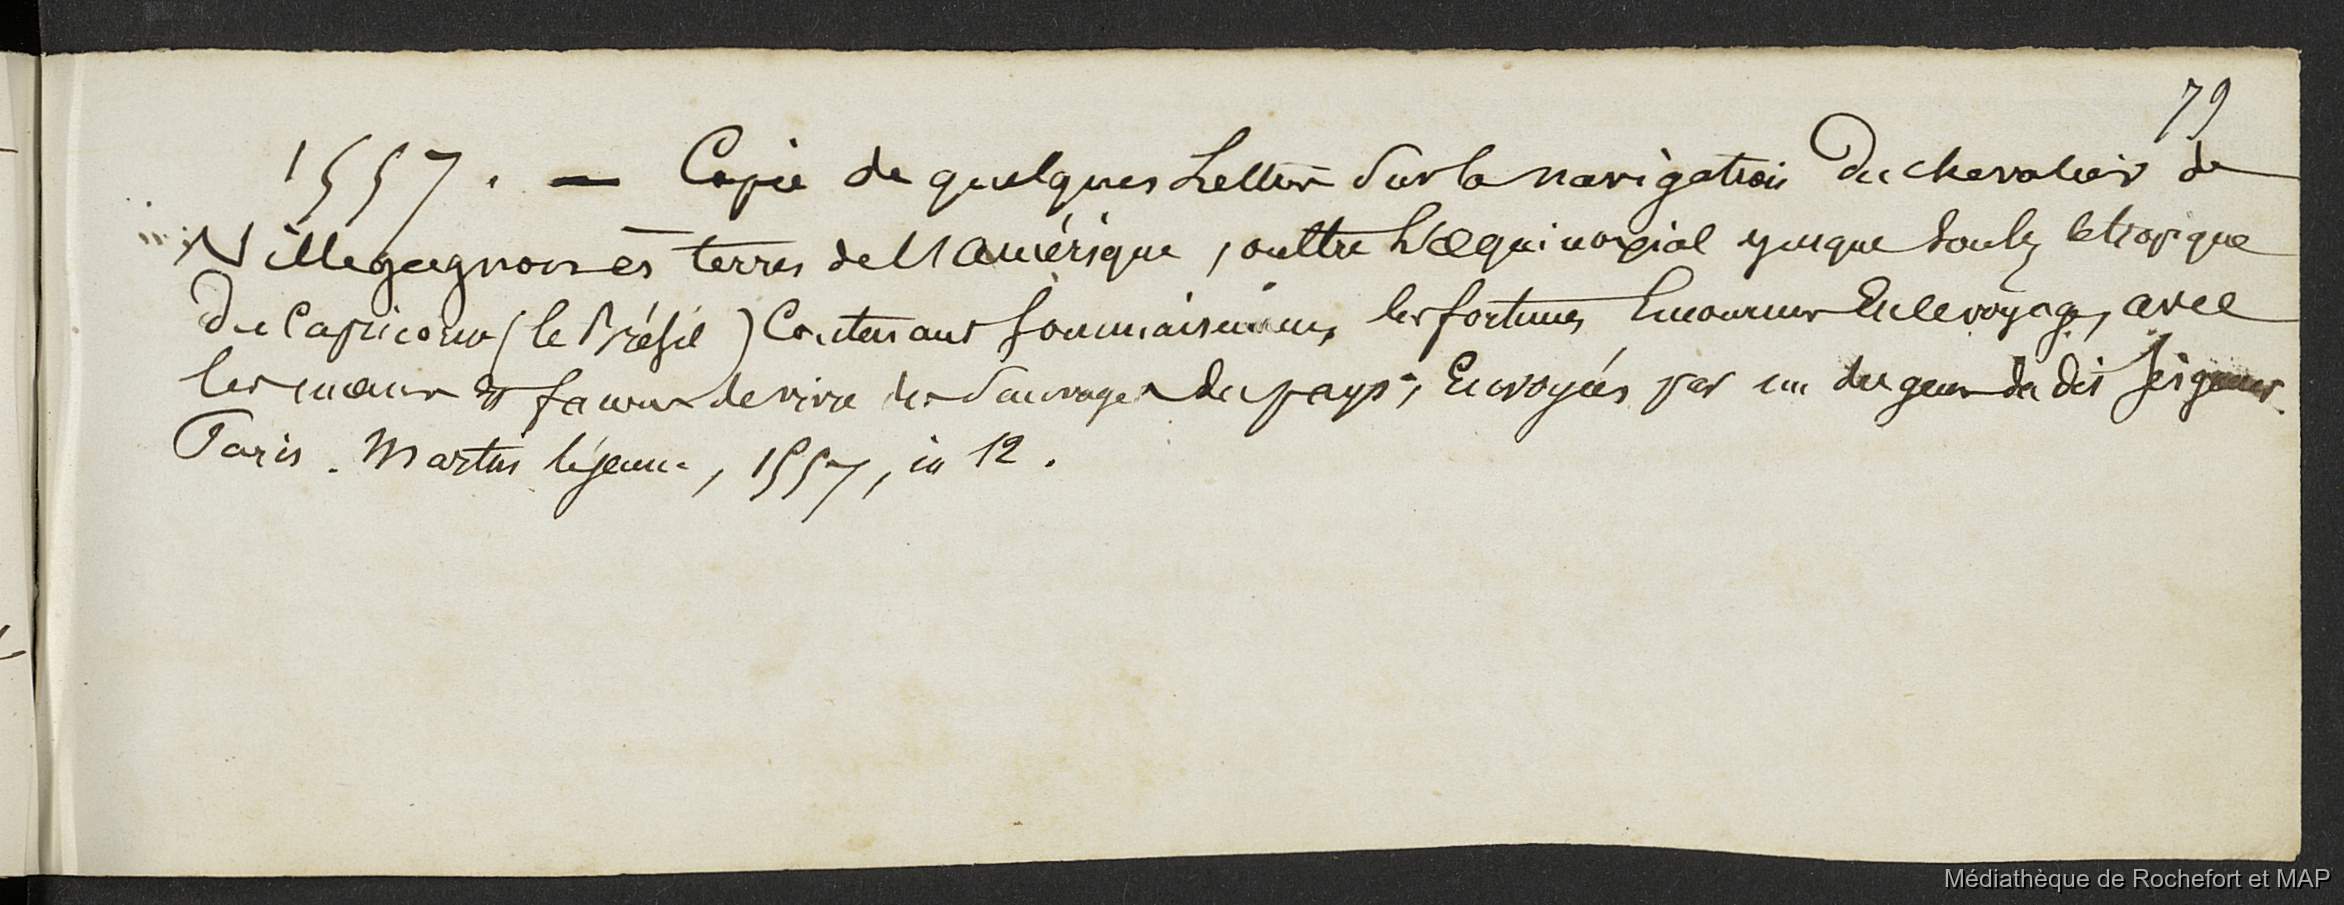 79
1557. — Copie de quelques Lettres sur la navigation du chevalier de
Villegagnon es terres de l'Amérique, oultre l'Aequinoxial jusque soulz le tropique
du Capricorne (le Brésil) Contenant sommairement, les fortunes encourues en le voyage, avec
les mœurs & façons de vivre des sauvages du pays; Envoyées par un des gens du dit Seigneur.
Paris. Martin lejeune, 1557, in 12.
Médiathèque de Rochefort et MAP